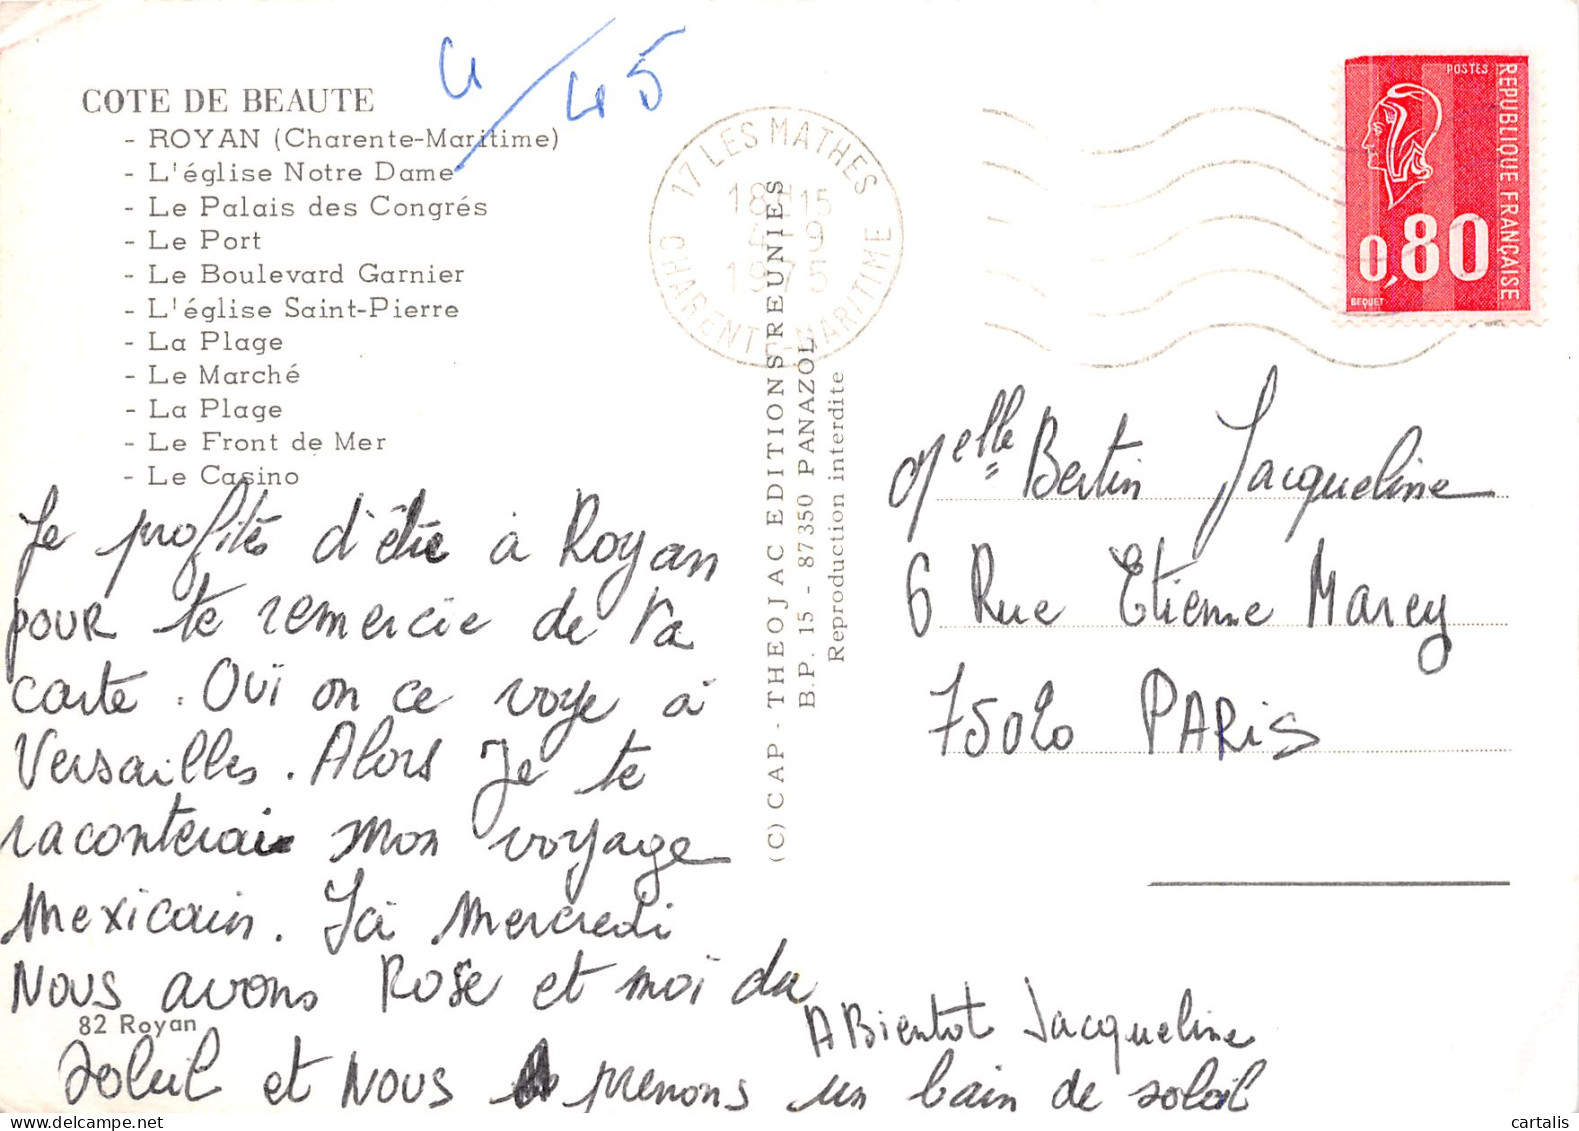 4/45
COTE DE BEAUTE
- ROYAN (Charente-Maritime)
- L'église Notre Dame
- Le Palais des Congrés
- Le Port
- Le Boulevard Garnier
- L'église Saint-Pierre
- La Plage
- Le Marché
- La Plage
- Le Front de Mer
- Le Casino
Je profités d'étre à Royan
pour te remercie de ta
carte. Oui on ce voye à
Versailles. Alors Je te
raconterai mon voyage
Mexicain. Ici Mercredi
Nous avons Rose et moi du
82 Royan
soleil et Nous prenons un bain de soleil
A Bientot Jacqueline
17 LES MATHES
18H15
4-9
1975
CHARENTE-MARITIME
(C) CAP - THEOJAC EDITIONS REUNIES
B.P. 15 - 87350 PANAZOL
Reproduction interdite
POSTES
REPUBLIQUE FRANÇAISE
0,80
BEQUET
Melle Bertin Jacqueline
6 Rue Etienne Marey
75020 PARIS
cartalis